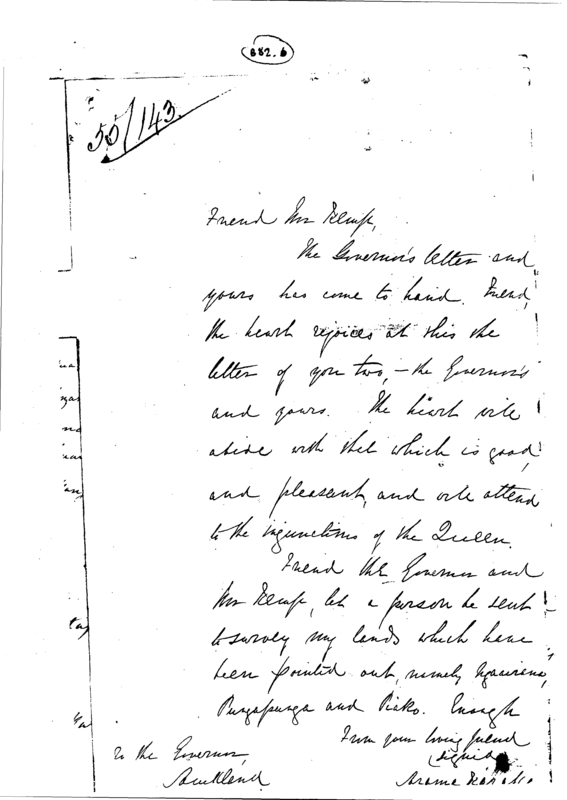 B82.6
55/143.
Friend Mr Kemp,
The Governor's letter and
yours has come to hand. Friend,
the heart rejoices at this the
letter of you two, – the Governor's
and yours. The heart will
abide with that which is good
and pleasant, and will attend
to the injunctions of the Queen.
Friend the Governor and
Mr Kemp, let a person be sent
to survey my lands which have
been pointed out, namely
and Piako. Enough
From your loving friend
(signed)
To the Governor,
Auckland